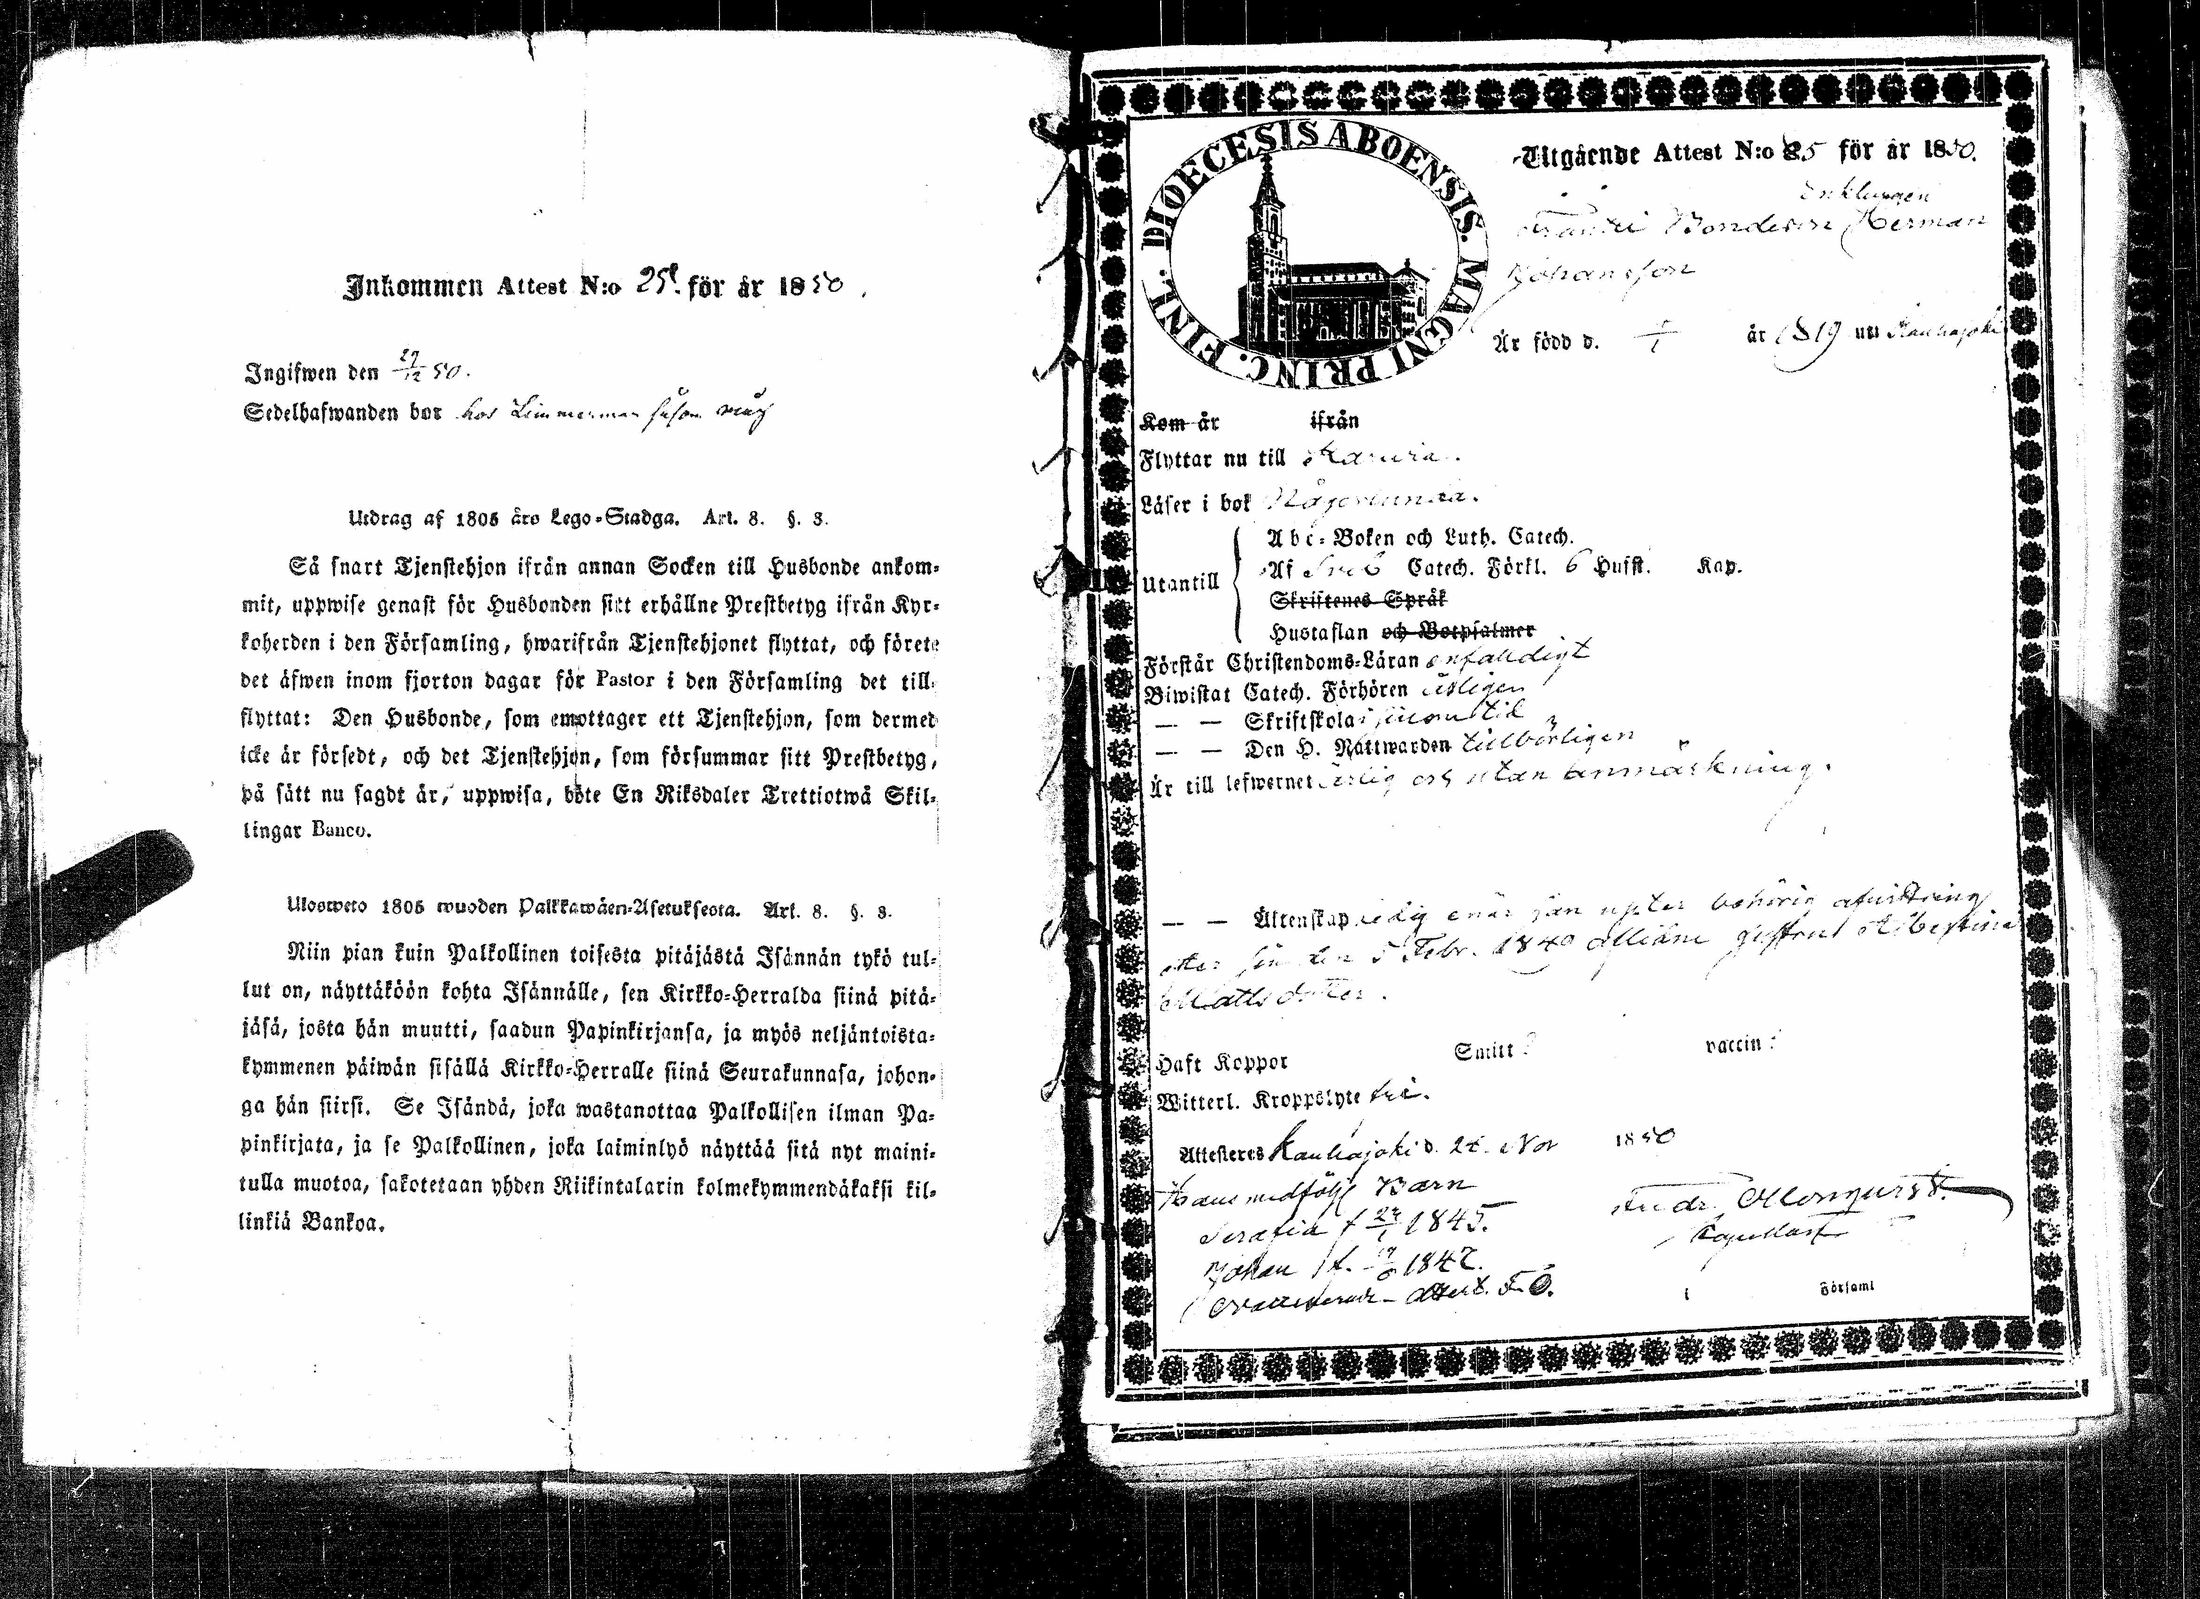 Inkommen Attest N:o 25 för år 1850.
Ingifwen den 29/12 50.
Sedelhafwanden bor hos Timmerman
Utdrag af 1805 års Lego-Stadga. Art. 8. §. 3.
Så snart Tjenstehjon ifrån annan Socken till Husbonde ankom-
mit, uppwise genast för Husbonden sitt erhållne Prestbetyg ifrån Kyr-
koherden i den Församling, hwarifrån Tjenstehjonet flyttat, och förete
det äfwen inom fjorton dagar för Pastor i den Församling det till-
flyttat: Den Husbonde, som emottager ett Tjenstehjon, som dermed
icke är försedt, och det Tjenstehjon, som försummar sitt Prestbetyg,
på sätt nu sagdt är, uppwisa, böte En Riksdaler Trettiotwå Skil-
lingar Banco.
Ulosweto 1805 wuoden Palkkawäen-Asetuksesta. Art. 8. §. 3.
Niin pian kuin Palkollinen toisesta pitäjästä Isännän tykö tul-
lut on, näyttäköön kohta Isännälle, sen Kirkko-Herralda siinä pitä-
jäsä, josta hän muutti, saadun Papinkirjansa, ja myös neljäntoista-
kymmenen päiwän sisällä Kirkko-Herralle siinä Seurakunnasa, johon-
ga hän siirsi. Se Isändä, joka wastanottaa Palkollisen ilman Pa-
pinkirjata, ja se Palkollinen, joka laiminlyö näyttää sitä nyt maini-
tulla muotoa, sakotetaan yhden Riikintalarin kolmekymmendäkaksi kil-
linkiä Bankoa.
DIOECESIS ABOENSIS. MAGNI PRINC. FINL.
Utgående Attest N:o 85 för år 1850.
Enklingen
Bondeson Herman
Johansson
Är född d. 1/1 år 1819 uti Kauhajoki
Kom år ifrån
Flyttar nu till
Läser i bok Någorlunda.
Utantill
Abc-Boken och Luth. Catech.
Af Sveb Catech. Förkl. 6 Hufst. Kap.
Skriftenes Språk
Hustaflan och Botpsalmer
Förstår Christendoms-Läran enfaldigt
Biwistat Catech. Förhören årligen
— — Skriftskola i sinom tid
— — Den H. Nattwarden tillbörligen
Är till lefwernet ärlig och utan anmärkning.
— — Äktenskap ledig enär han njuter behörig afwittring
efter sin den 5 Febr. 1840
Matts dotter.
Haft Koppor Smitt vaccin:
Witterl. Kroppslyte fri.
Attesteres Kauhajoki d. Nov 1850
Hans medfölje Barn
Serafia f 1845.
Johan f. 1847.
Kapellan
i Församl